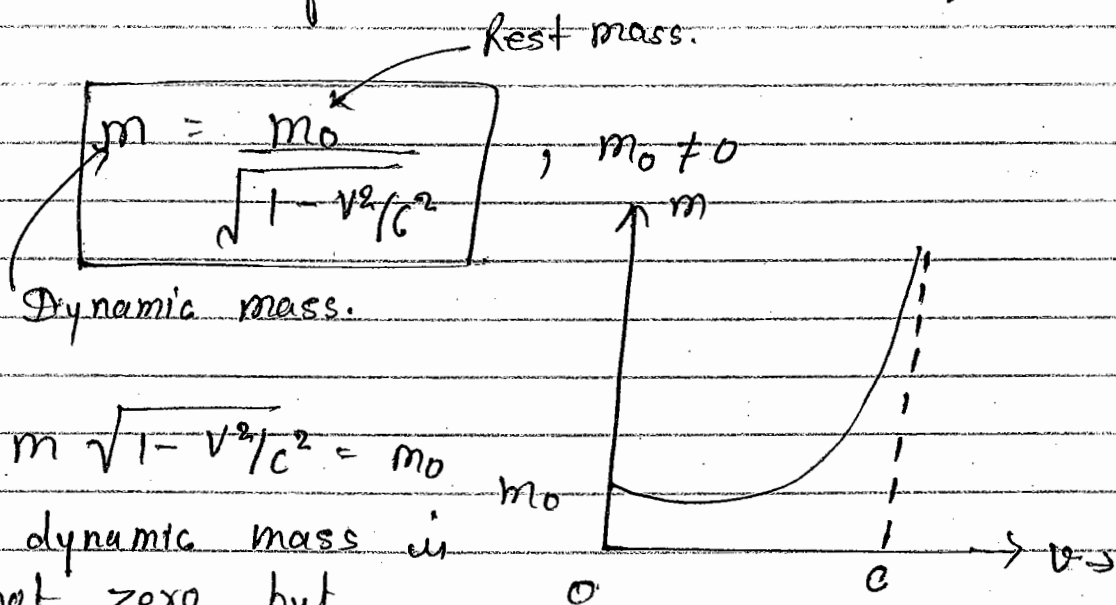 Rest mass.
m = m₀ / √(1 - v²/c²) , m₀ ≠ 0
m
Dynamic mass.
m √(1 - v²/c²) = m₀
m₀
dynamic mass is
not zero but
0
c
v→